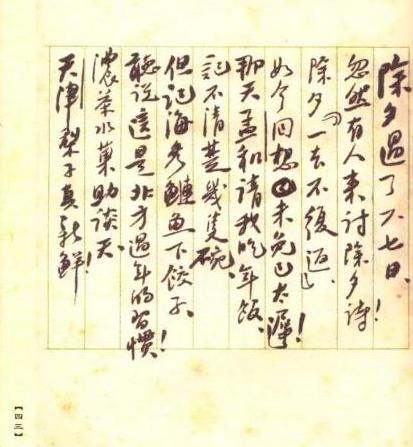 除夕過了六七日、
忽然有人來討除夕詩！
除夕「一去不復返」、
如今回想未免已太遲！
那天孟和請我吃年飯、
記不清楚幾隻碗、
但記海參鰱魚下餃子、
聽說這是北方過年的習慣！
濃茶水菓助談天、
天津梨子真新鮮！
【四三】